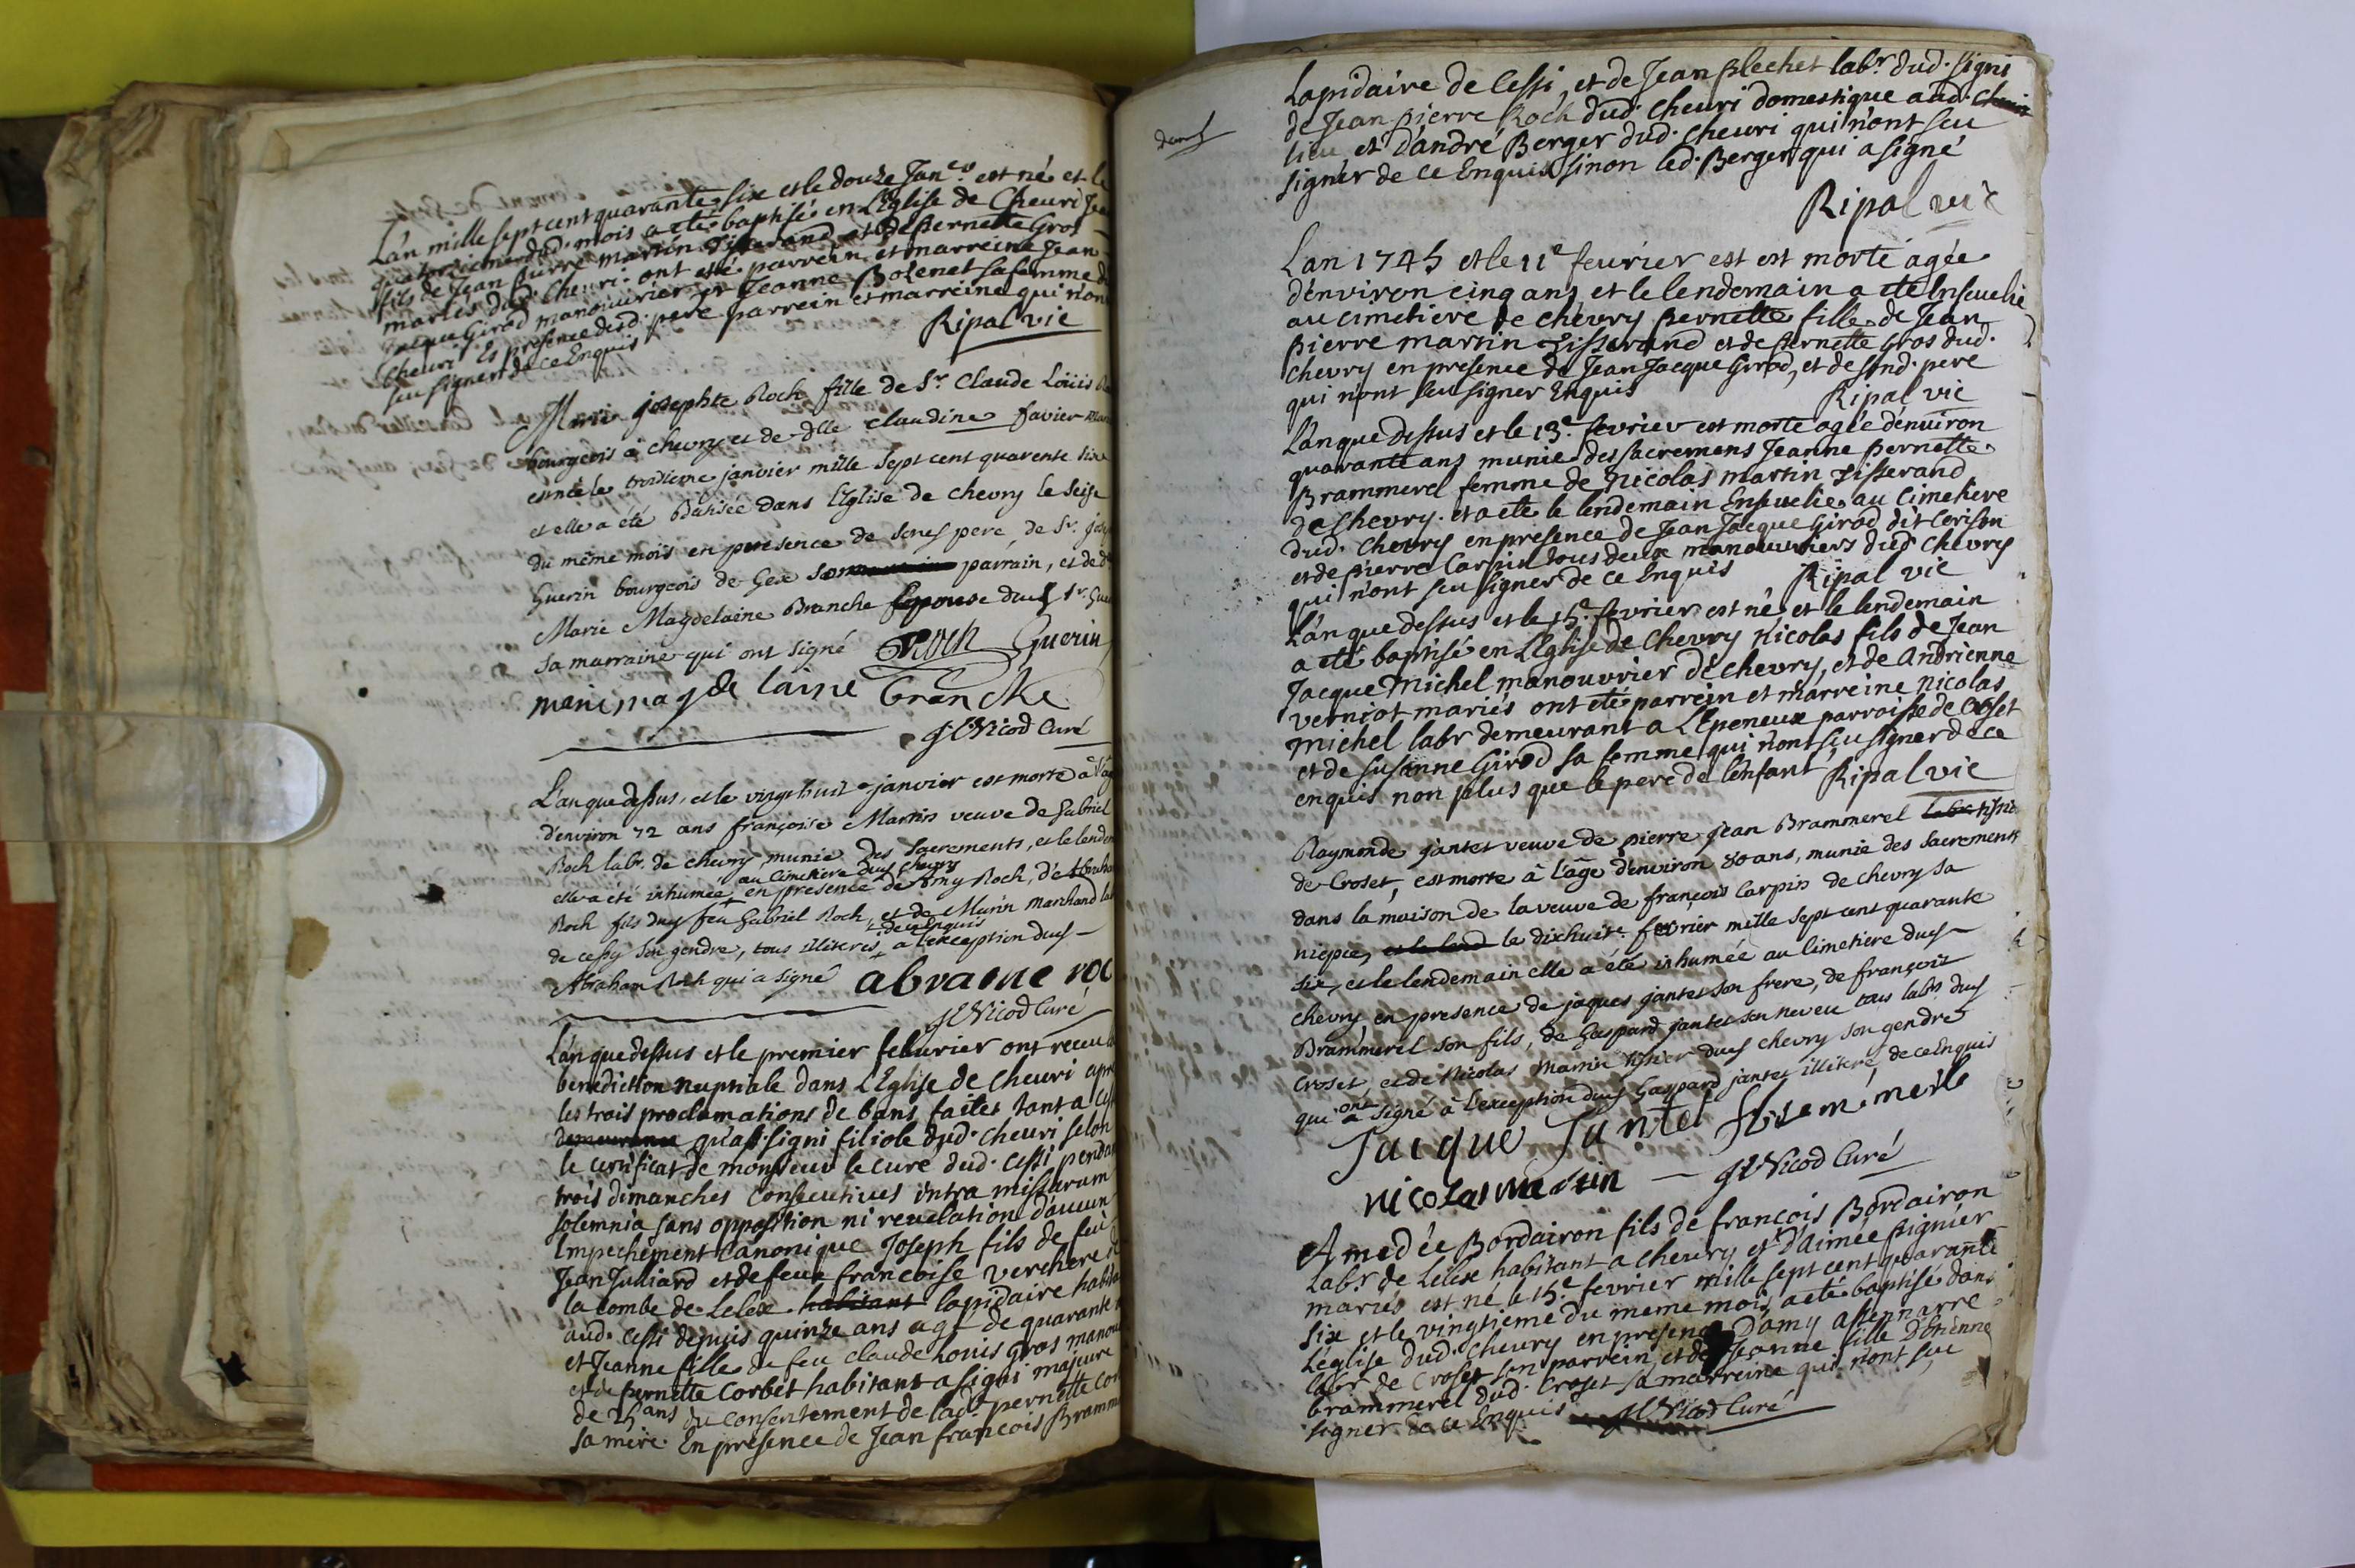 L'an mille sept cent quarante six et le douze Janv. est né et le
quatorzieme dud. mois a eté baptisé en L'Eglise de Cheuri
fils de Jean Pierre Martin Tisserand et de Pernette Gros
mariés dud. Cheuri. ont eté parrein et marreine Jean
Jacque Girod manouvrier et Jeanne Bolenet sa femme
Cheuri Es presence desd. pere parrein et marreine qui n'ont
seu signer de ce Enquis
Ripal vic
Marie josephte Roch fille de Sr. Claude Loüis
bourgeois à chevry et de dlle claudine favier
est née le troisieme janvier mille sept cent quarente six
et elle a été Batisée dans L'Eglise de chevry le seise
du même mois en presence de son pere, de Sr.
Guerin bourgeois de Gex parrain, et de
Marie Magdelaine Branche Epouse dud Sr.
sa marraine qui ont signé Roch Guerin
marimagdelaine branche
Nicod Curé
L'an que dessus, et le vingt huit janvier est morte à
d'environ 72 ans françoise Martin veuve de Gabriel
Roch labr. de chevry munie des sacrements, et le
au Cimetiere dud chevry
elle a été inhumée en presence de amy Roch, d'
Roch fils dud feu Gabriel Roch, et de Marin marchand
de ce Enquis
de cessy son gendre, tous illiteres a l'exception dud
Abraham Roch qui a signé abrame
Nicod Curé
L'an que dessus et le premier feburier ont receu
benediction nuptiale dans L'Eglise de Cheuri
les trois proclamations de bans faites tant a
demeurance qu'a signi filiole dud. cheuri selon
le certificat de monsieur le cure dud. cessi
trois dimanches Consecutives intra missarum
solemnia sans opposition ni reuelation d'aucun
Impechement Canonique Joseph fils de feu
Jean Julliard et de feue francoise verchere
la combe de Lelex habitant lapidaire
aud. cessi depuis quinze ans agé de quarante
et Jeanne fille de feu claude Louis gros
et de pernette Corbet habitant a signi majeure
de 25 ans du consentement de lad. pernette
sa mere. En presence de Jean francois
dans
Lapidaire de Cessi, et de Jean Blechet labr. dud. signi
de Jean pierre Roch dud. Cheuri domestique aud.
lieu et d'andré Berger dud. Cheuri qui n'ont seu
signer de ce Enquis sinon led. Berger qui a signé
Ripal vic
L'an 1745 et le 11e feurier est est morte agée
d'environ cinq ans et le lendemain a eté Enseuelie
au cimetiere de chevry pernette fille de Jean
pierre martin Tisserand et de pernette Gros dud.
chevry en presence de Jean Jacque Girod, et de sond. pere
qui n'ont seu signer Enquis Ripal vic
L'an que dessus et le 13e. fevrier est morte agée d'environ
quarante ans munie des sacremens Jeanne pernette
Brammerel femme de Nicolas martin Tisserand
de Chevry. et a eté le lendemain Enseuelie au Cimetiere
dud. Chevry en presence de Jean Jacque Girod dit Cerison
et de pierre Carpin tous deux manouvriers dud. Chevry
qui n'ont seu signer de ce Enquis Ripal vic
L'an que dessus et le 15e. fevrier est né et le lendemain
a eté baptisé en L'Eglise de Chevry Nicolas fils de Jean
Jacque Michel manouvrier de chevry, et de Andrienne
verniot mariés ont eté parrein et marreine Nicolas
Michel labr demeurant a L'Epeneux parroisse de
et de susanne Girod sa femme qui n'ont seu signer de ce
enquis non plus que le pere de l'enfant Ripal vic
Raymonde jantet veuve de pierre jean Brammerel
de Croset, est morte à l'âge d'environ 80 ans, munie des Sacrements
dans la maison de la veuve de françois Carpin de chevry sa
niepce, et le lend le dixhuite. fevrier mille sept cent quarante
six, et le lendemain elle a été inhumée au Cimetiere dud
chevry, en presence de jaques jantet son frere, de françois
Brammerel son fils, de Gaspard jantet son neveu tous labrs dud
Croset, et de Nicolas Martin tissier dud chevry son gendre
qui ont signé à l'exception dud Gaspard jantet illiteré, de ce Enquis
Jacque Jantet
nicolas martin Nicod Curé
Amedée Bordairon fils de francois Bordairon
Labr de Lelex habitant a chevry et d'aimée
mariés est né le 15e. fevrier mille sept cent quarante
six et le vingtieme du meme mois, a eté baptisé dans
L'eglise dud. Chevry en presence D'amy
labr de Croset son parrein, et de Jeanne fille D'Etienne
brammerel dud. Croset sa marreine qui n'ont seu
signer de ce Enquis Nicod Curé